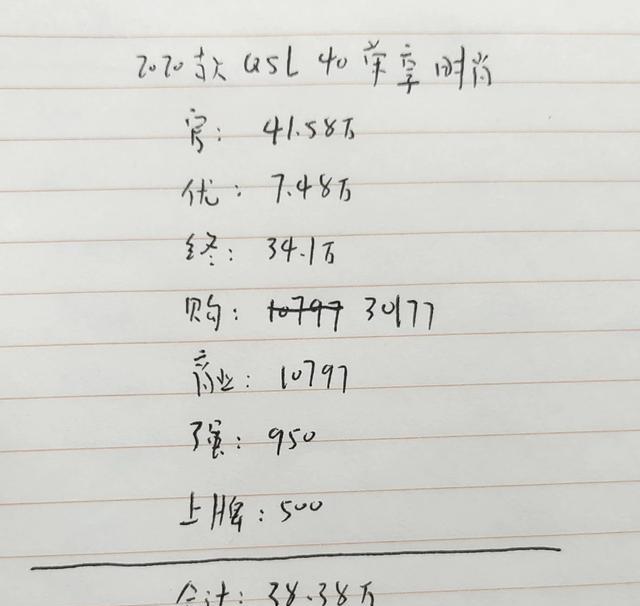 2020款 Q5L 40 荣享时尚
官: 41.58万
优: 7.48万
终: 34.1万
购: 10797 30177
商业: 10797
强: 950
上牌: 500
合计: 38.38万